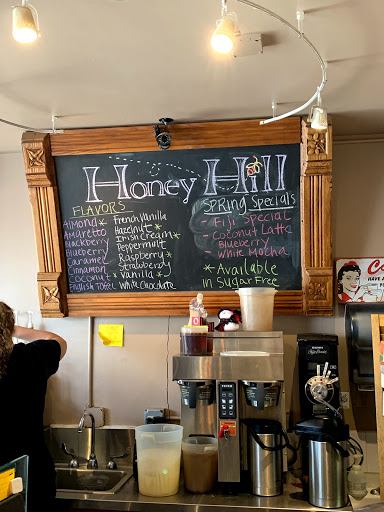 Honey Hill
FLAVORS
Almond *
Amaretto
Blackberry
Blueberry
Caramel
Cinnamon
Coconut
English Toffee
French Vanilla
Hazelnut *
Irish Cream *
Peppermint
Raspberry *
Strawberry
* Vanilla *
White Chocolate
SPRING Specials
- Fiji Special
- Coconut Latte
- Blueberry
White Mocha
* Available
in Sugar Free
HAVE A